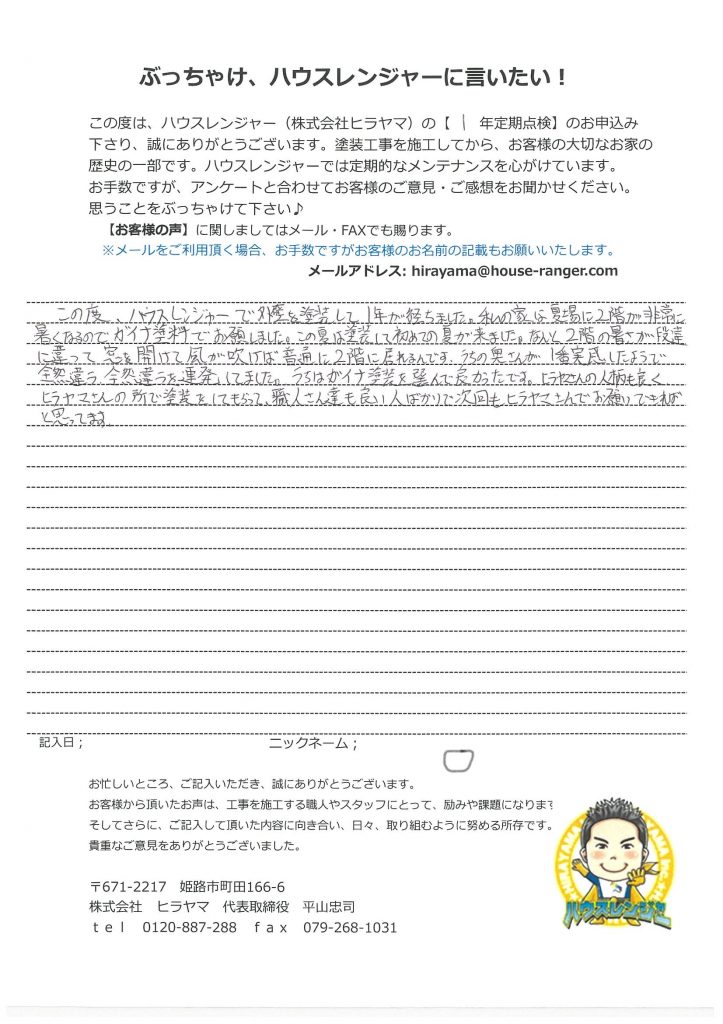 ぶっちゃけ、ハウスレンジャーに言いたい！
この度は、ハウスレンジャー（株式会社ヒラヤマ）の【 1 年定期点検】のお申込み
下さり、誠にありがとうございます。塗装工事を施工してから、お客様の大切なお家の
歴史の一部です。ハウスレンジャーでは定期的なメンテナンスを心がけています。
お手数ですが、アンケートと合わせてお客様のご意見・ご感想をお聞かせください。
思うことをぶっちゃけて下さい♪
【お客様の声】に関しましてはメール・FAXでも賜ります。
※メールをご利用頂く場合、お手数ですがお客様のお名前の記載もお願いいたします。
メールアドレス: hirayama@house-ranger.com
この度、ハウスレンジャーで外壁を塗装して1年が経ちました。私の家は夏場に2階が非常に
暑くなるのでガイナ塗料でお願しました。この夏は塗装して初めての夏が来ました。なんと2階の暑さが段違
に違って窓を開けて風が吹けば普通に2階に居れるんです。うちの奥さんが1番実感したようで
全然違う全然違うを連発してました。うちはガイナ塗装を選んで良かったです。ヒラヤマさんの人柄も良く
ヒラヤマさんの所で塗装をしてもらって、職人さん達も良い人ばかりで次回もヒラヤマさんでお願いできれば
と思ってます
記入日；
ニックネーム；
お忙しいところ、ご記入いただき、誠にありがとうございます。
お客様から頂いたお声は、工事を施工する職人やスタッフにとって、励みや課題になります
そしてさらに、ご記入して頂いた内容に向き合い、日々、取り組むように努める所存です。
貴重なご意見をありがとうございました。
〒671-2217 姫路市町田166-6
株式会社 ヒラヤマ 代表取締役 平山忠司
ｔｅｌ 0120-887-288 ｆａｘ 079-268-1031
ハウスレンジャー